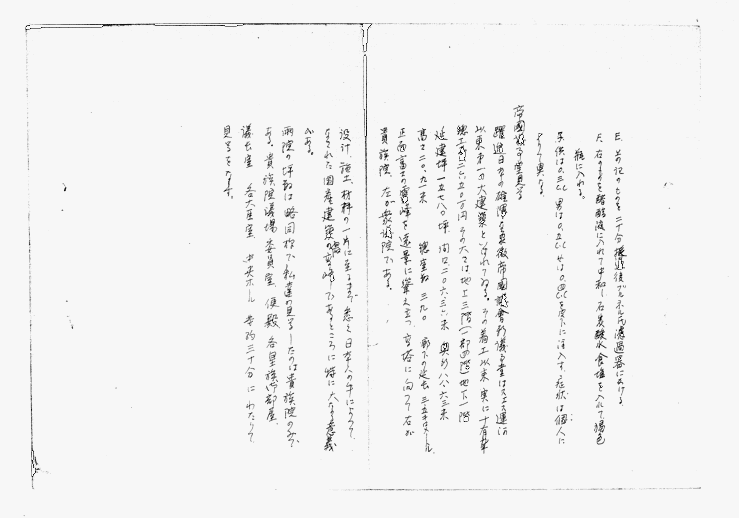 E. 前記のものを二十分攪拌後ブフネル氏濾過器にあける
F. 右のまゝを醋酸液に入れて中和し石炭酸水食塩を入れて褐色
瓶に入れる。
子供は0.3cc 男は0.5cc 女は0.4ccを皮下に注入する症状は個人に
よりて異なる。
帝國議事堂見学
躍進日本の雄渾を象徴帝國議会新議事堂はスエズ運河
以東第一の大建築といはれてゐる。その着工以来実に十有余年
総工費二六五〇万円 その大さは地上三階(一部四階)地下一階
延建坪一五七八〇坪 間口二〇六・三六米 奥行八八・六三米
高さ二〇・九一米 総室数三九〇 廊下の延長三五キロメートル
正面富士の霊峰を遠景に聳え立つ高塔に向って右が
貴族院、左が衆議院である。
設計、施工、材料の一片に至るまで悉く日本人の手によって
なされた國産建築の最高峰であるところに特に大なる意義
がある。
両院の坪数は略同格で私達の見学したのは貴族院のみで
ある。貴族院議場 委員室、便殿、各皇族御部屋、
議長室 各大臣室、中央ホール 等約三十分にわたりて
見学をなす。